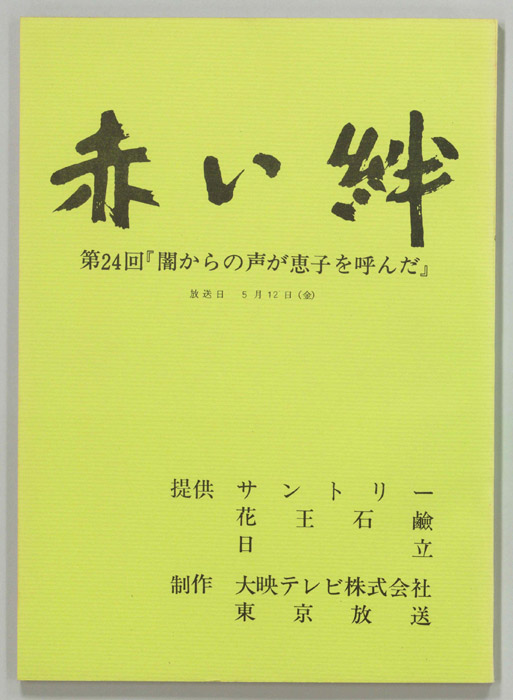 赤い絆
第24回『闇からの声が恵子を呼んだ』
放送日 5月12日(金)
提供 サントリー
花王石鹸
日立
制作 大映テレビ株式会社
東京放送